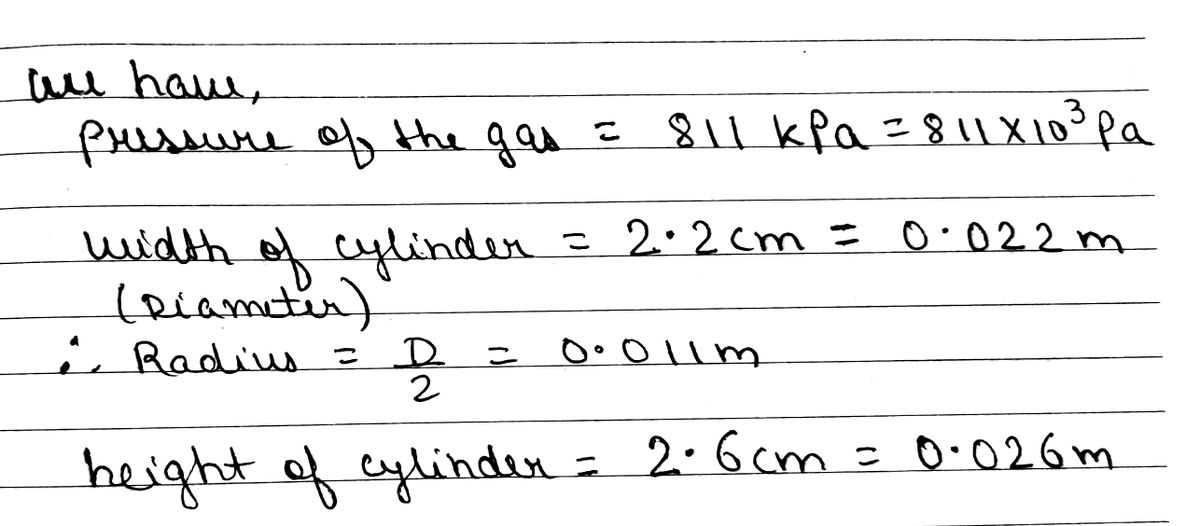 we have,
pressure of the gas = 811 kPa = 811×10³ Pa
width of cylinder = 2.2cm = 0.022m
(Diameter)
∴ Radius = D/2 = 0.011m
height of cylinder = 2.6cm = 0.026m